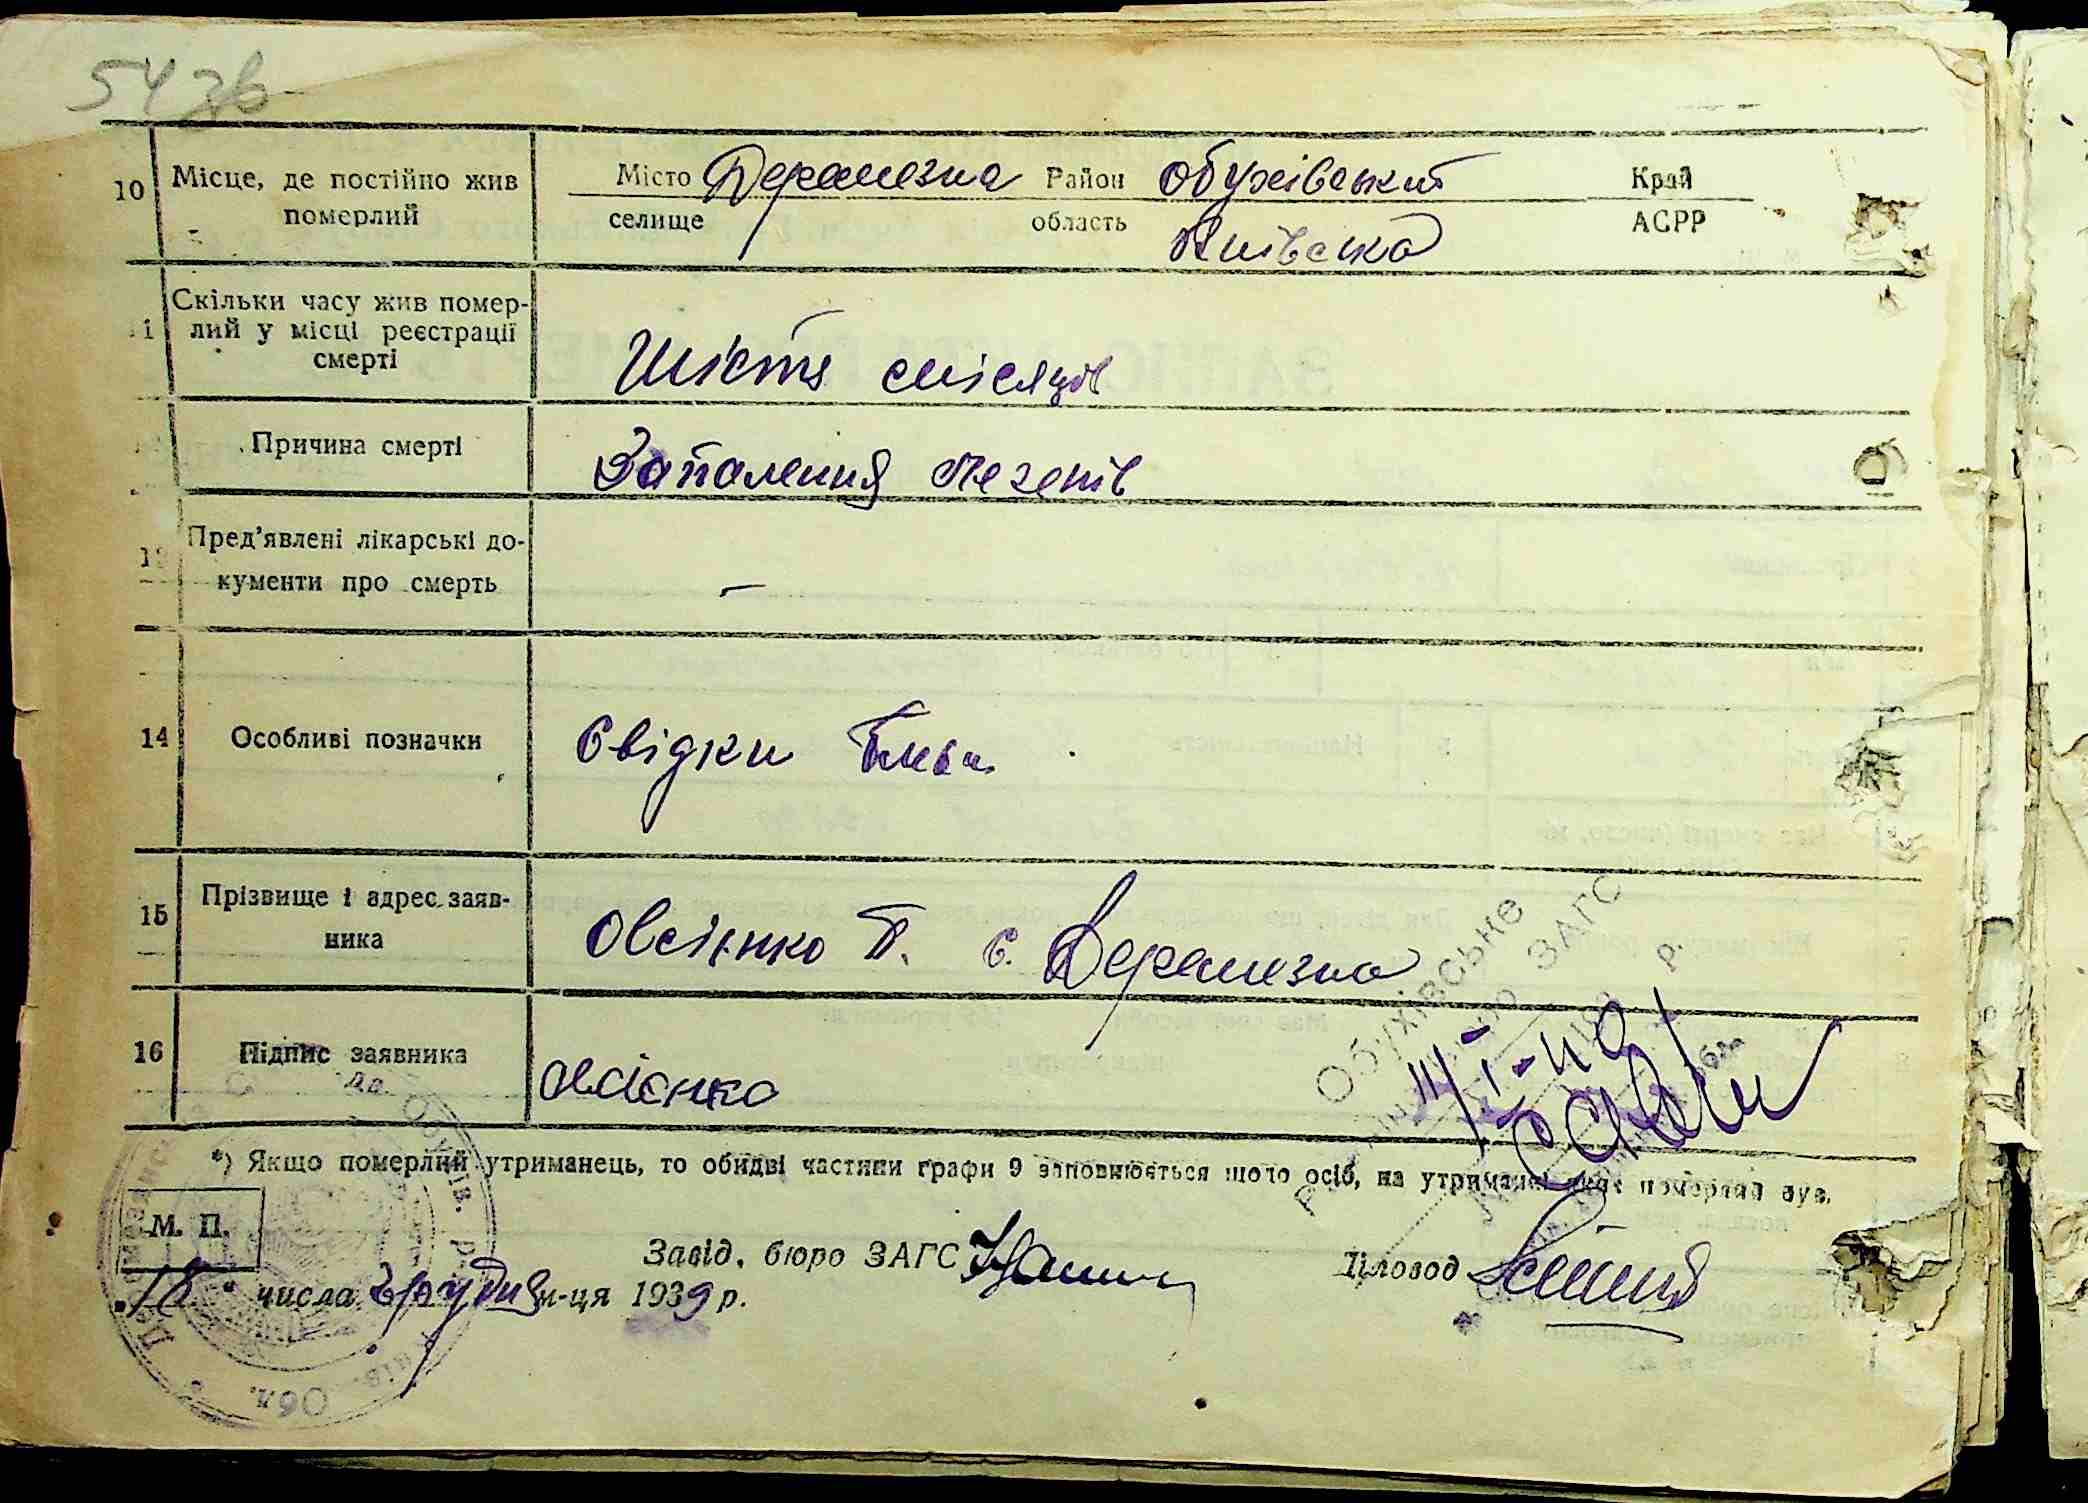 543в
10 Місце, де постійно жив померлий
Місто Деремезна Район Обухівський Край
селище область Київська АСРР
Скільки часу жив померлий у місці реєстрації смерті
Шість місяців
Причина смерті
Запалення легенів
Пред'явлені лікарські документи про смерть
–
14 Особливі позначки
Свідки
15 Прізвище і адрес заявника
Овсієнко П. с. Деремезна
16 Підпис заявника
Овсієнко
Обухівське
ЗАГС
р.
*) Якщо померлий утриманець, то обидві частини графи 9 заповнюється щодо осіб, на утриманні яких померлий був.
М. П.
Завід. бюро ЗАГС
Діловод
"18" числа грудня м-ця 1939 р.
Обл.